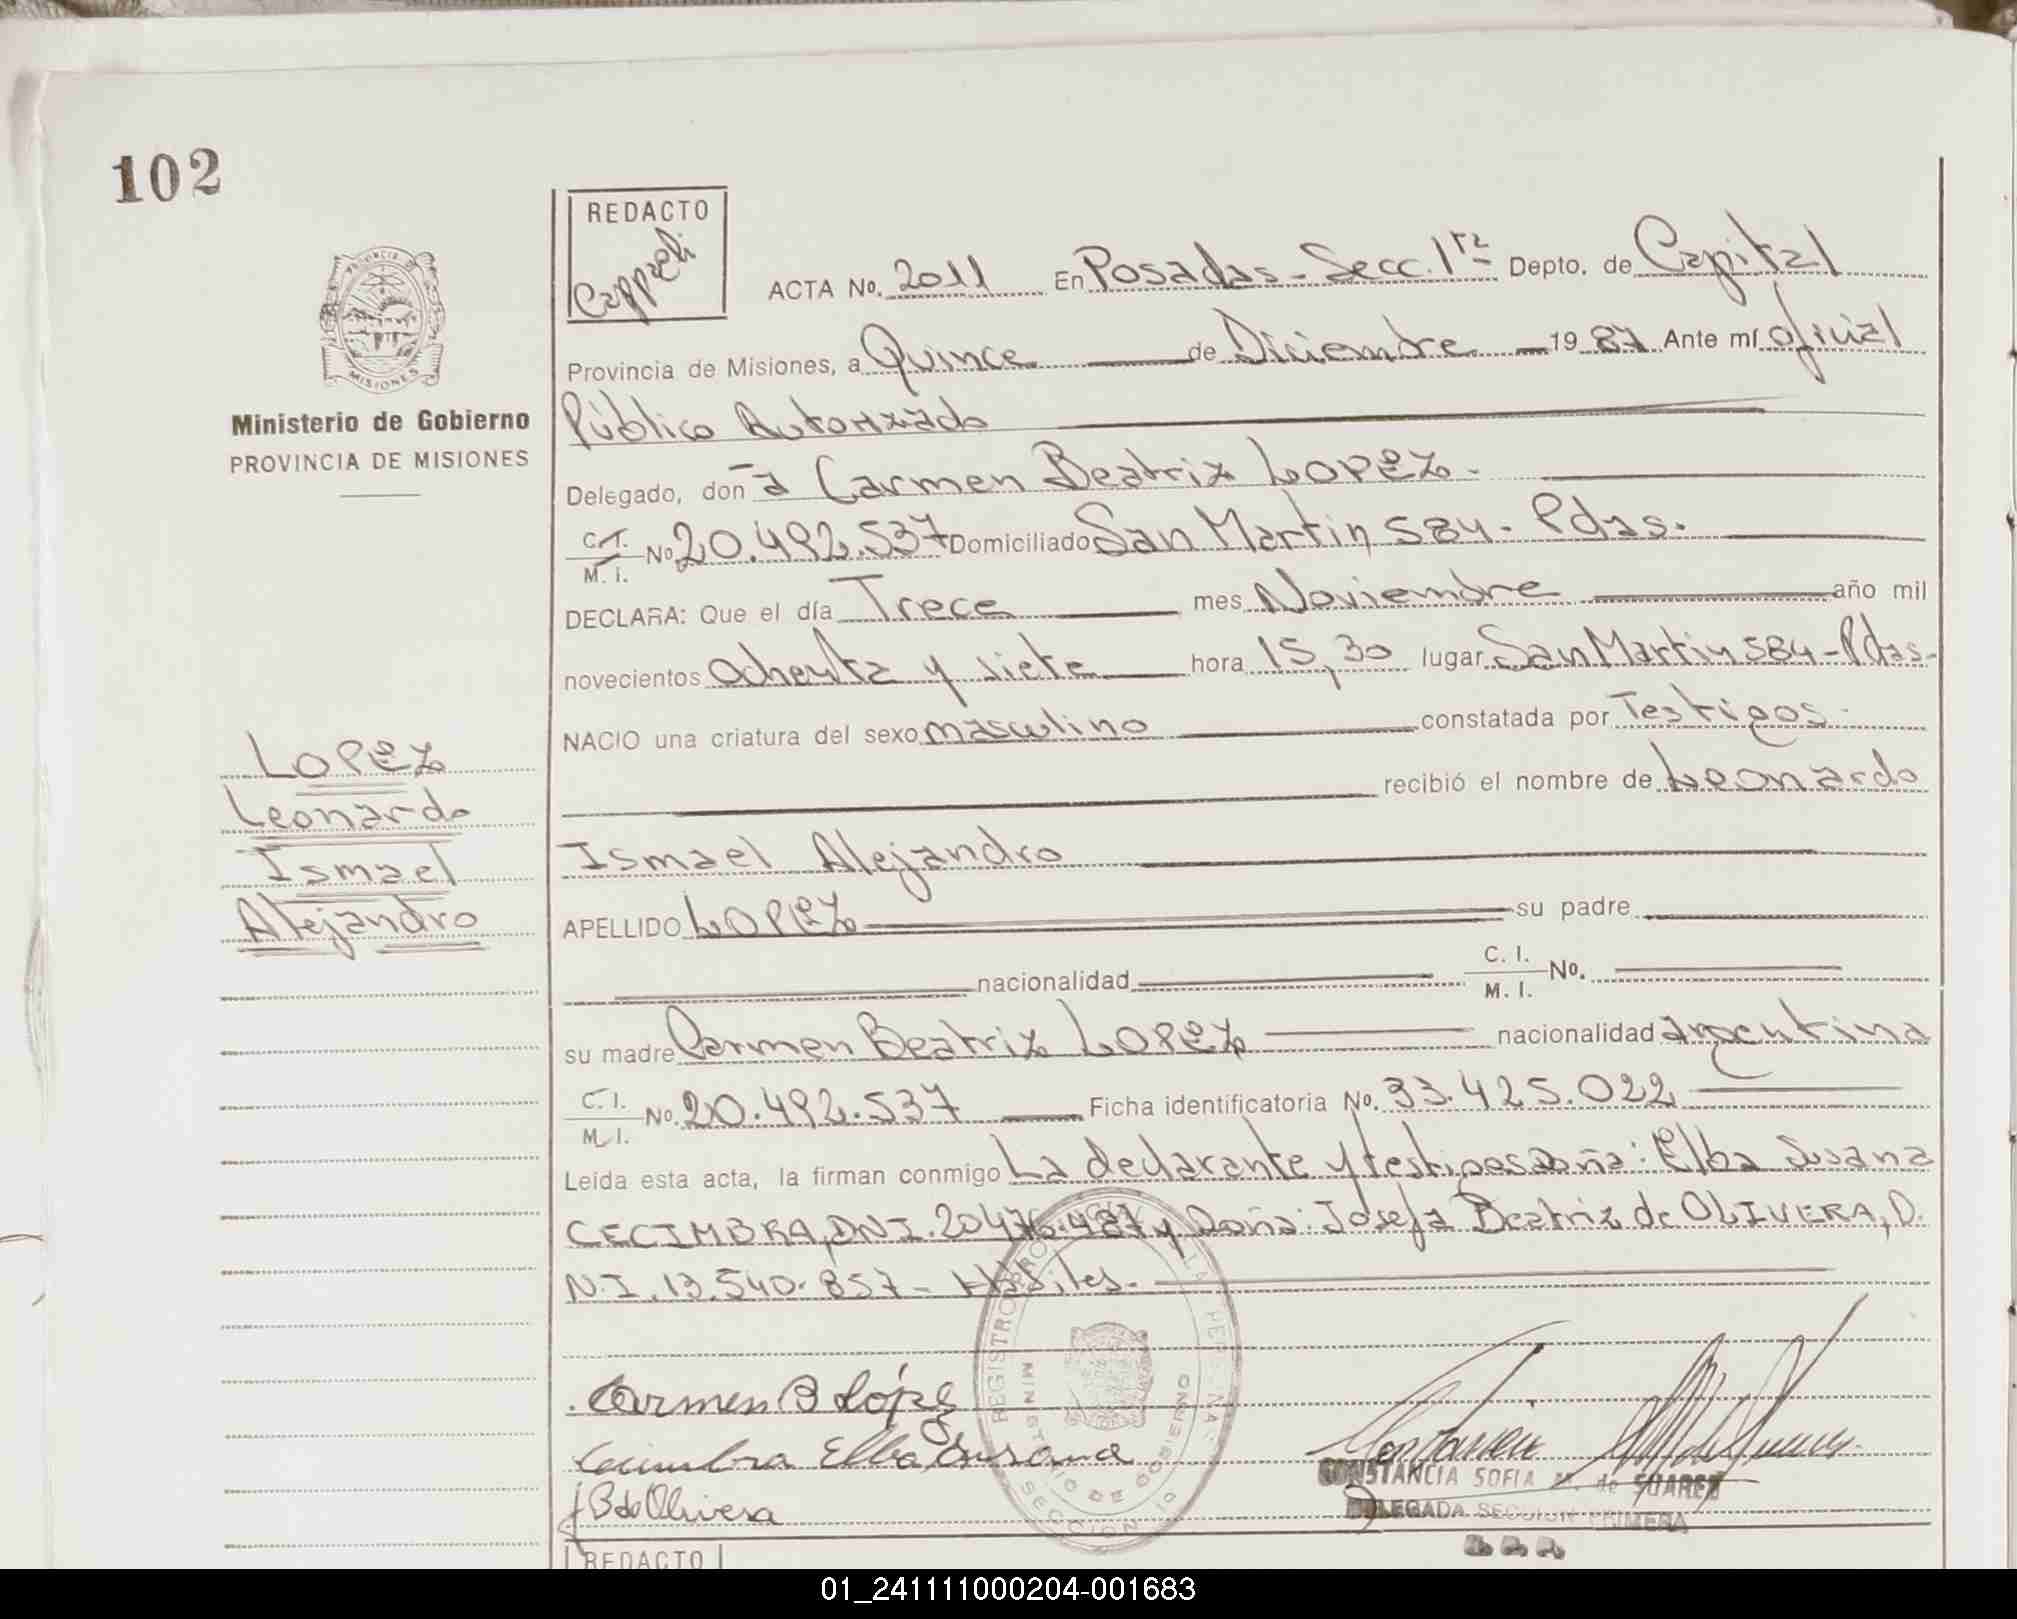 102
REDACTO
Cappeli
ACTA No. 2011 En Posadas - Secc. 1ra Depto. de Capital
Provincia de Misiones, a Quince de Diciembre 1987 Ante mí oficial
Público Autorizado
Ministerio de Gobierno
PROVINCIA DE MISIONES
Delegado, don a Carmen Beatriz LOPEZ.-
C.I. M.I. No. 20.492.537 Domiciliado San Martin 584 - Pdas.
DECLARA: Que el día Trece mes Noviembre año mil
novecientos ochenta y siete hora 15,30 lugar San Martin 584 - Pdas-
NACIO una criatura del sexo masculino constatada por Testigos
recibió el nombre de Leonardo
Ismael Alejandro
LOPEZ
Leonardo
Ismael
Alejandro
APELLIDO LOPEZ su padre
nacionalidad C. I. M. I. No.
su madre Carmen Beatriz LOPEZ nacionalidad argentina
C.I. M.I. No. 20.492.537 Ficha identificatoria No. 33.425.022
Leída esta acta, la firman conmigo La declarante y testigos Doña: Elba Susana
CECIMBRA, DNI. 20476.487 y Doña: Josefa Beatriz de OLIVERA, D.
N.I. 13.540.857 - Hábiles.-
Carmen B López
Elba Susana
J B de Olivera
REGISTRO LAS PERSONAS
MINISTERIO DE GOBIERNO
SECCION
CONSTANCIA SOFIA M. de SUAREZ
DELEGADA SECCION PRIMERA
REDACTO
01_241111000204-001683